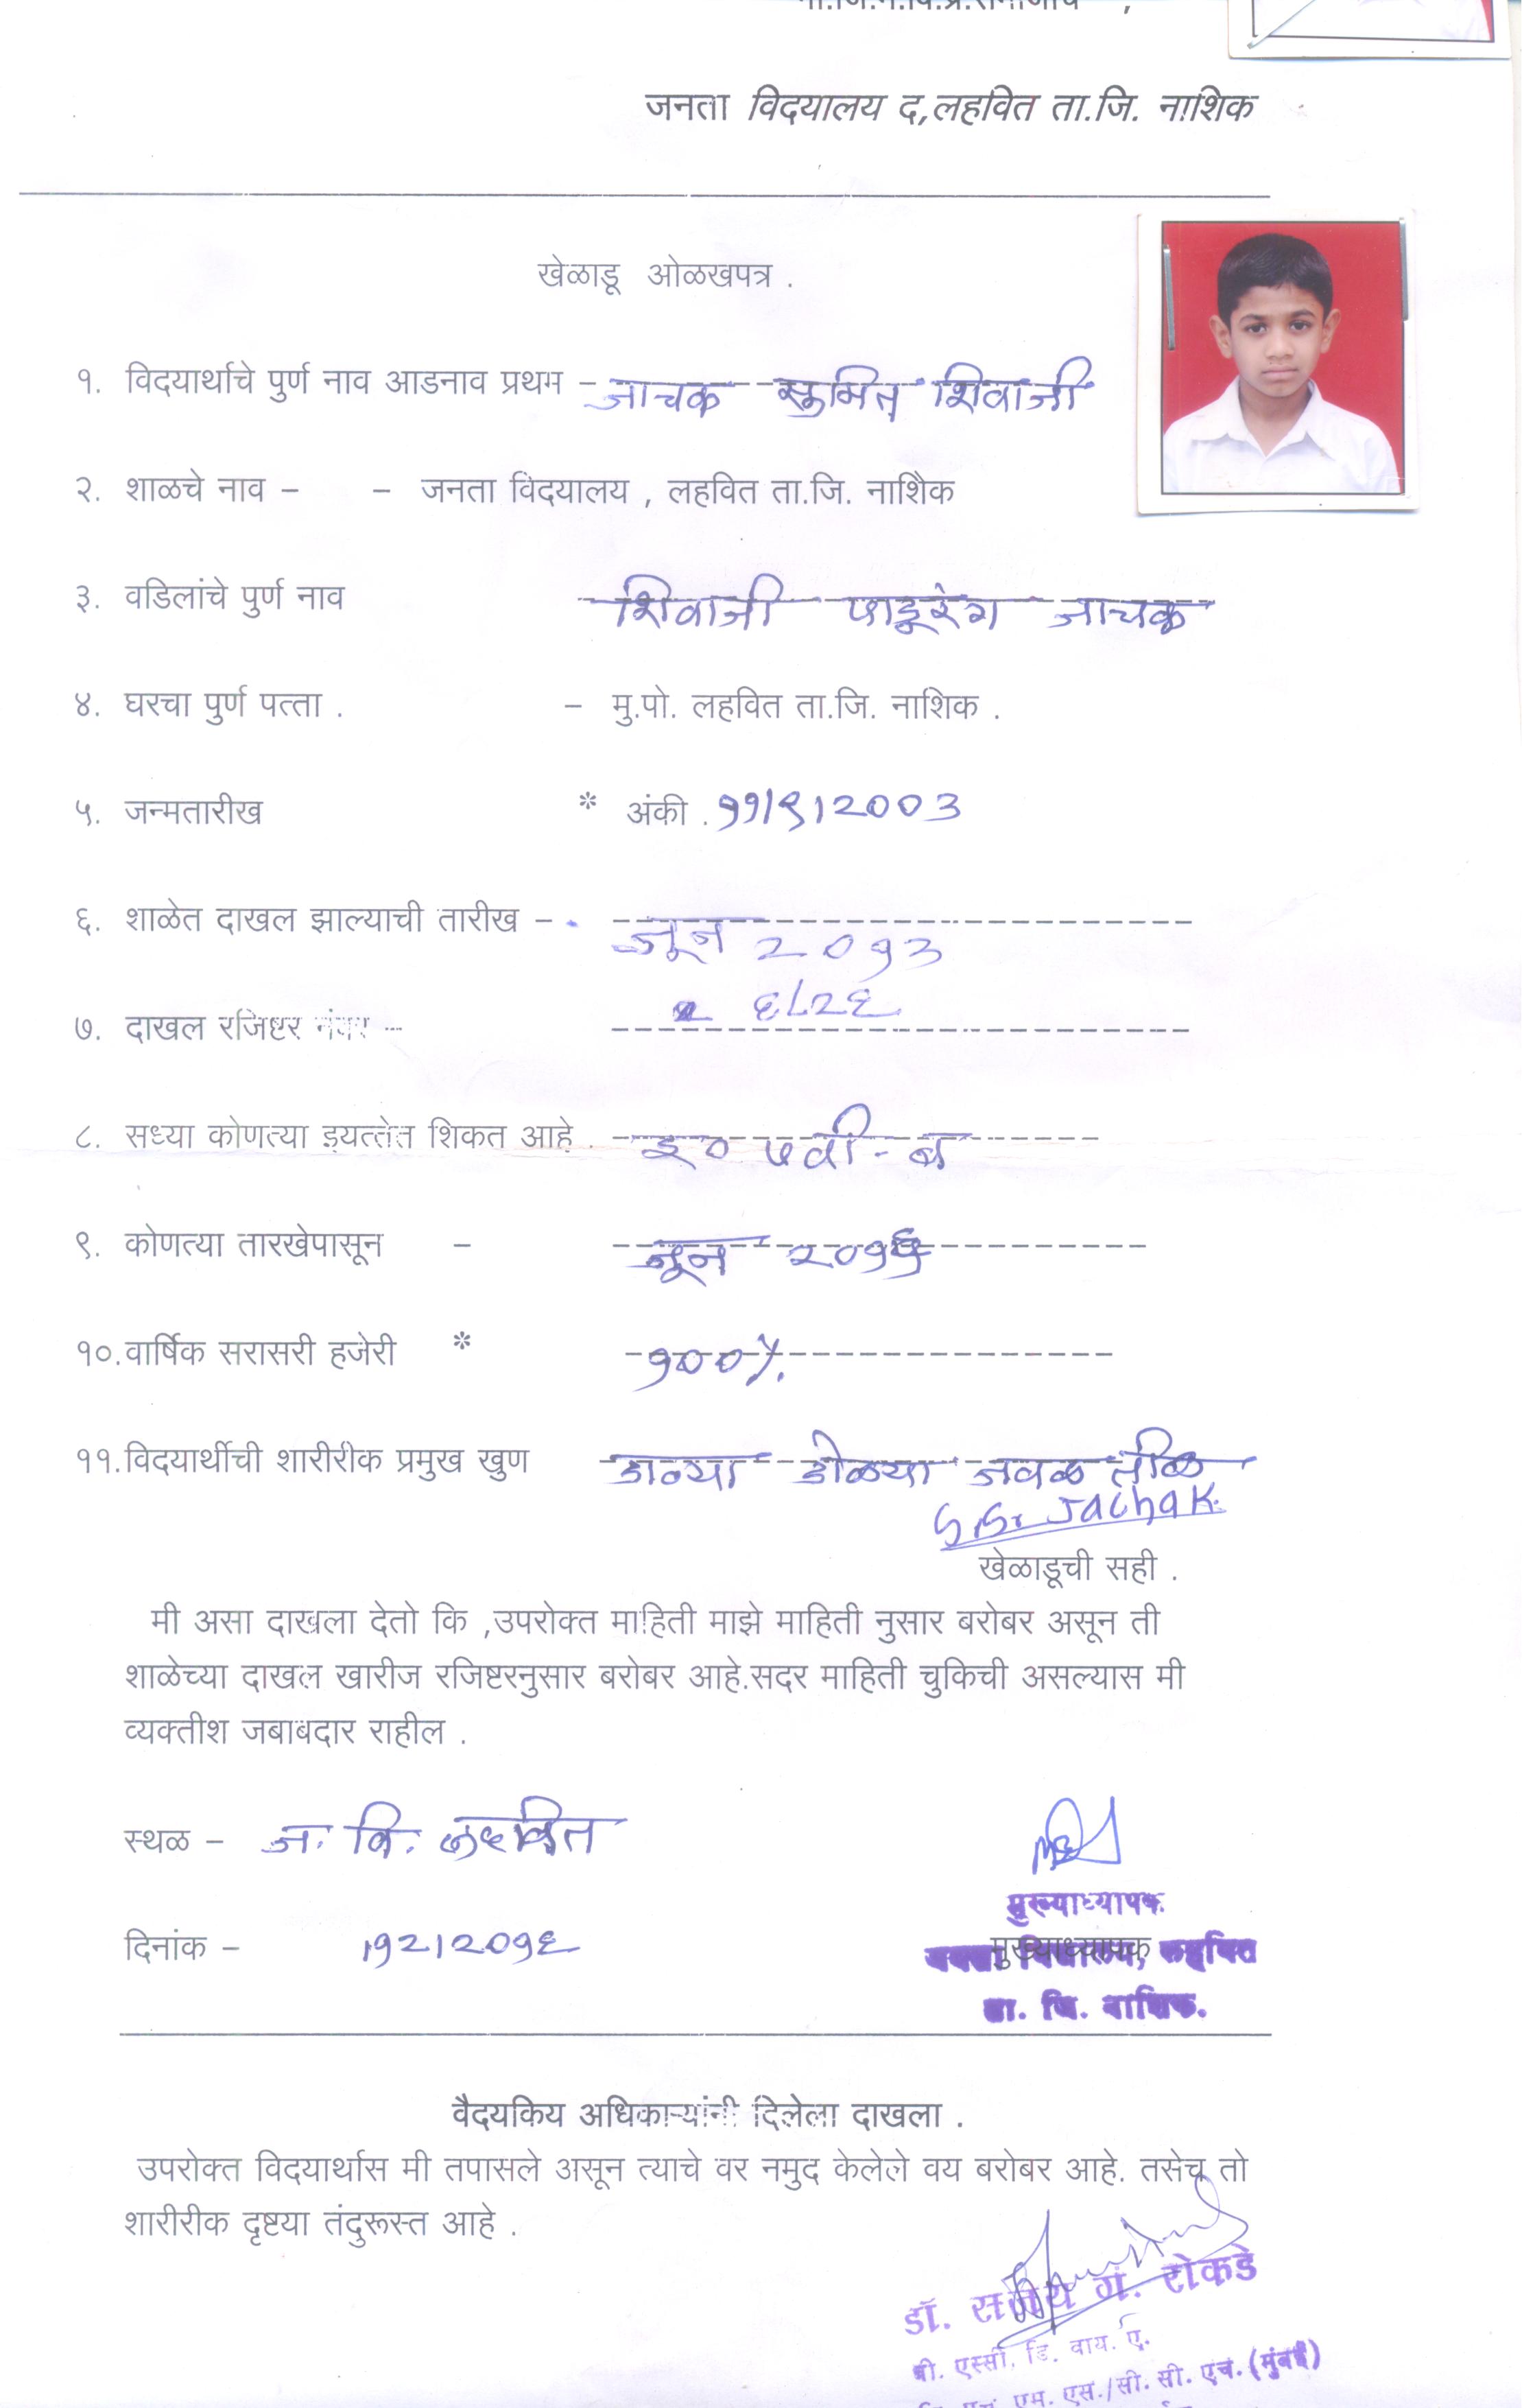 जनता विदयालय द,लहवित ता.जि. नाशिक
खेळाडू ओळखपत्र .
१. विदयार्थाचे पुर्ण नाव आडनाव प्रथम – जाचक सुमित शिवाजी
२. शाळचे नाव – – जनता विदयालय , लहवित ता.जि. नाशिक
३. वडिलांचे पुर्ण नाव शिवाजी पाडूरंग जाचक
४. घरचा पुर्ण पत्ता . – मु.पो. लहवित ता.जि. नाशिक .
५. जन्मतारीख * अंकी . ११/९/2003
६. शाळेत दाखल झाल्याची तारीख – जून 2०१३
७. दाखल रजिष्टर नंबर –
८. सध्या कोणत्या इयत्तेत शिकत आहे . इ० ७वी - ब
९. कोणत्या तारखेपासून – जून २०१६
१०. वार्षिक सरासरी हजेरी * १००%
११. विदयार्थीची शारीरीक प्रमुख खुण डाव्या डोळ्या जवळ तीळ
S.S. Jachak.
खेळाडूची सही .
मी असा दाखला देतो कि ,उपरोक्त माहिती माझे माहिती नुसार बरोबर असून ती
शाळेच्या दाखल खारीज रजिष्टरनुसार बरोबर आहे.सदर माहिती चुकिची असल्यास मी
व्यक्तीश जबाबदार राहील .
स्थळ – ज. वि. लहवित
दिनांक –
मुख्याध्यापक
मुख्याध्यापक
जनता विद्यालय, लहवित
ता. जि. नाशिक.
वैदयकिय अधिकाऱ्यांनी दिलेला दाखला .
उपरोक्त विदयार्थास मी तपासले असून त्याचे वर नमुद केलेले वय बरोबर आहे. तसेच तो
शारीरीक दृष्टया तंदुरूस्त आहे .
डॉ. संजय गं. रोकडे
बी. एस्सी. डि. वाय. ए.
एम. एस./सी. सी. एच. (मुंबई)